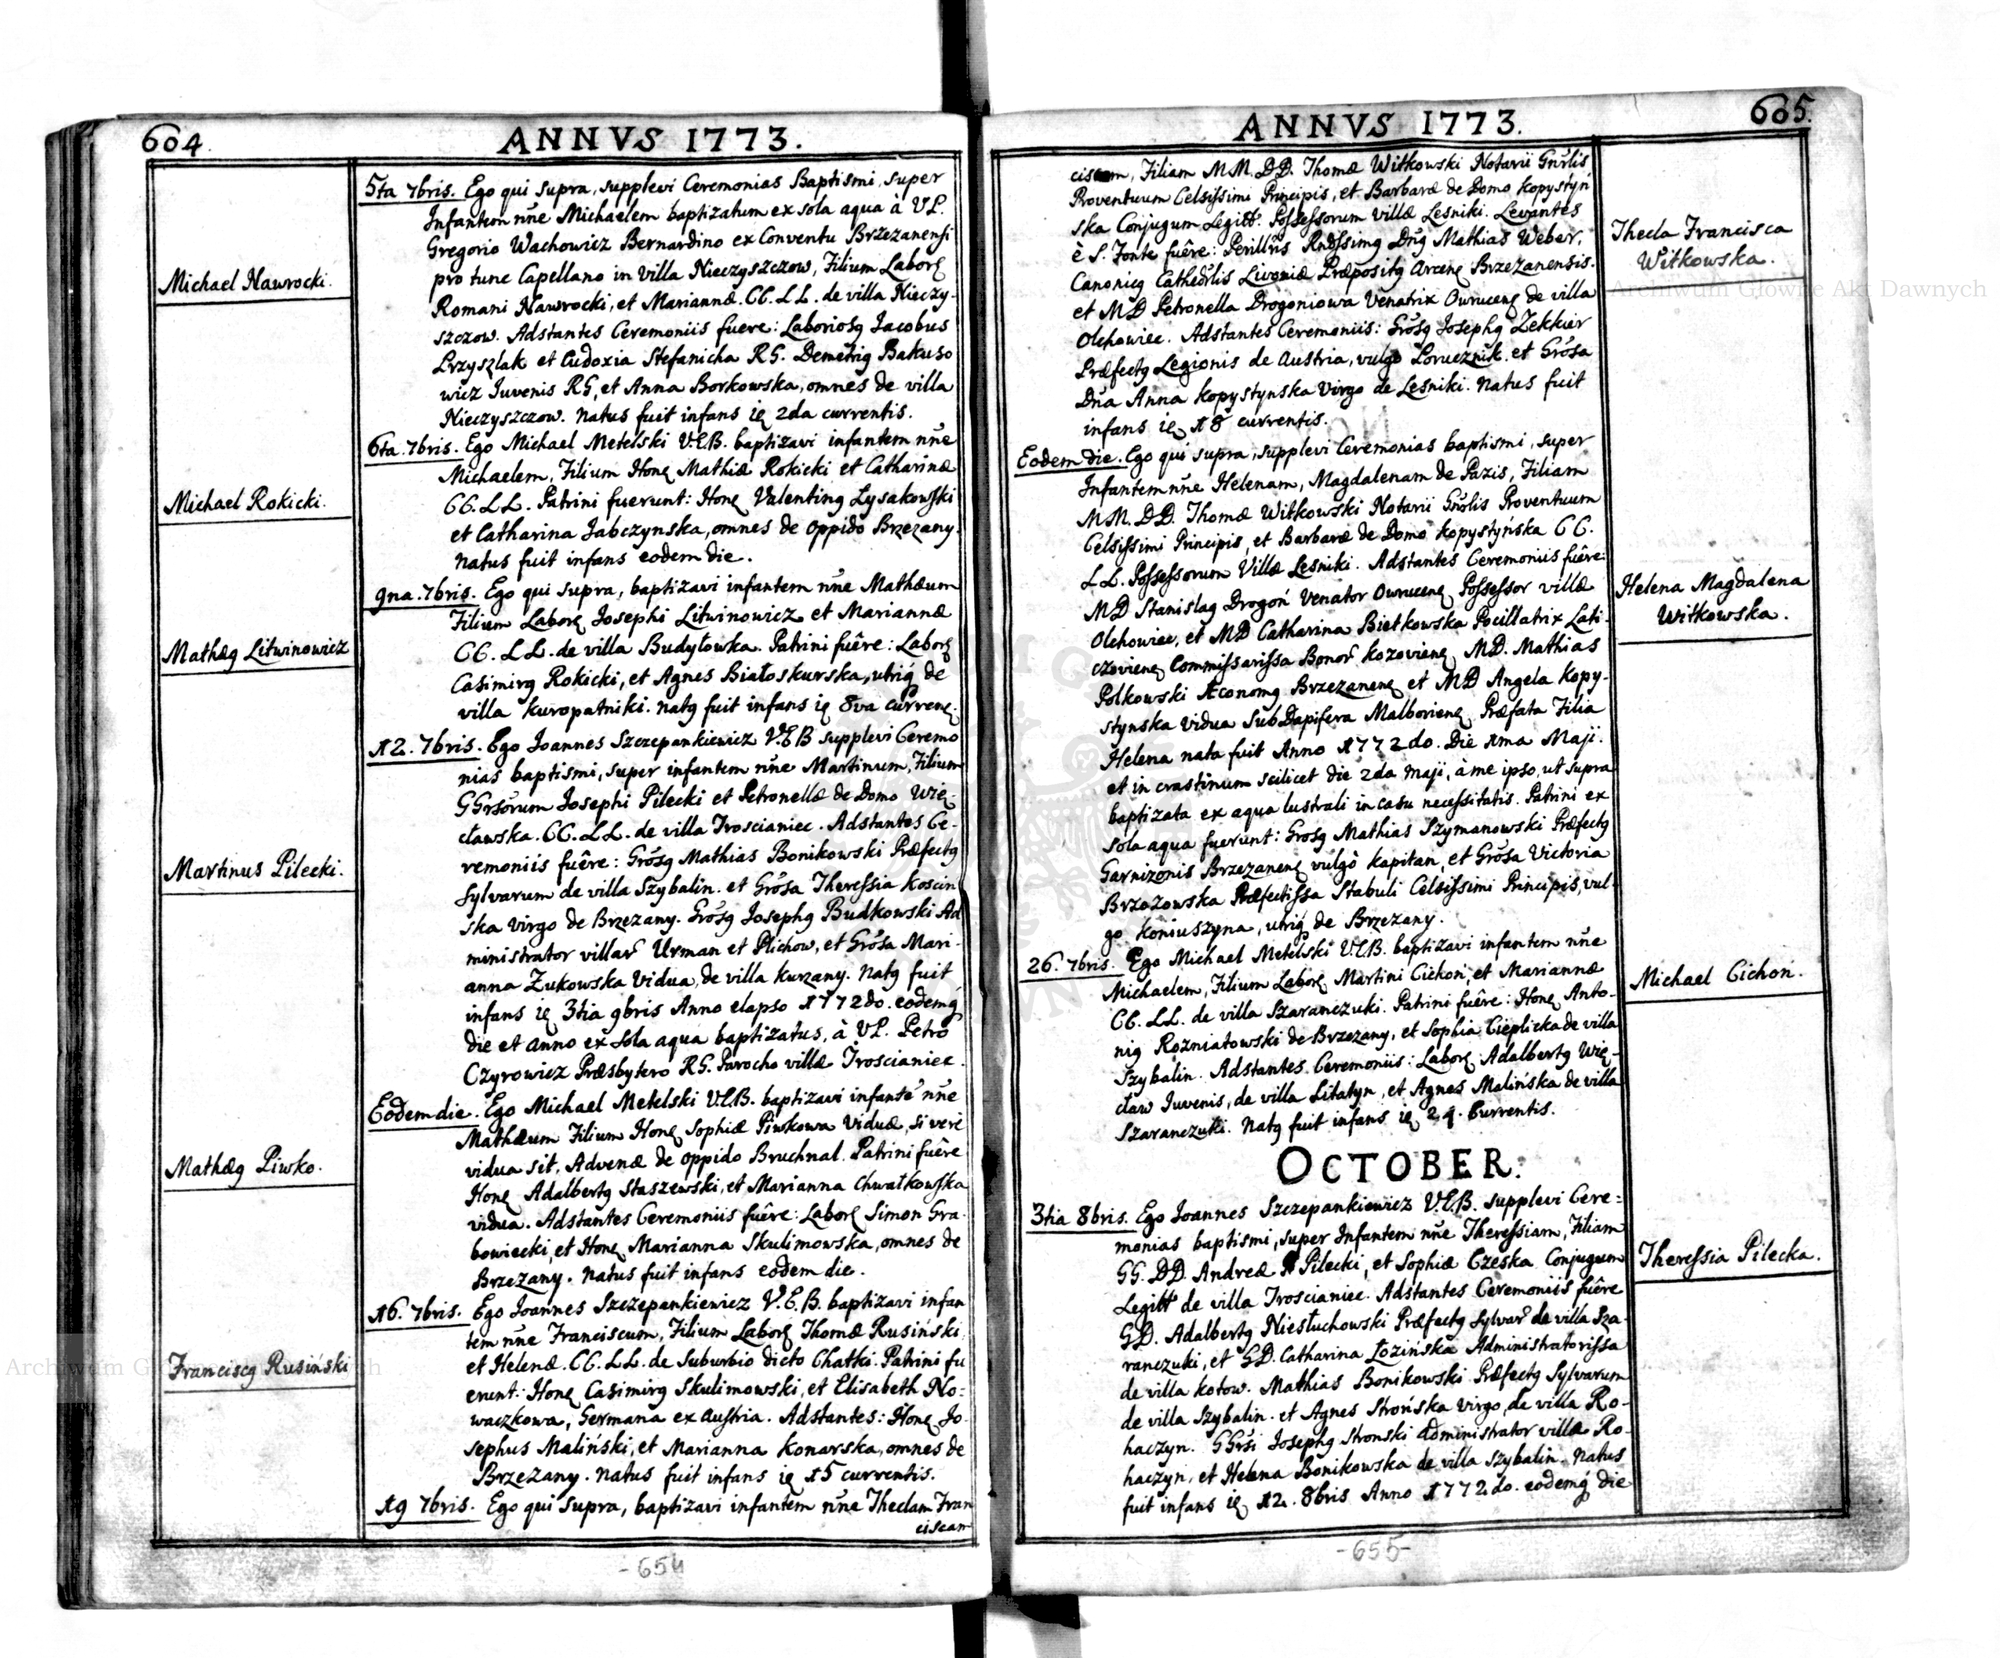 604.
ANNVS 1773.
Michael Nawrocki.
Michael Rokicki.
Mathæg Litwinowicz
Martinus Pilecki.
Mathæg Piwko.
Franciscg Rusiński
5ta 7bris. Ego qui supra, supplevi Ceremonias Baptismi, super
Infantem nn̄e Michaelem baptizatum ex sola aqua à V.P.
Gregorio Wachowicz Bernardino ex Conventu Brzezanensi
pro tunc Capellano in villa Nieczyszczow, Filium Laborę
Romani Nawrocki, et Mariannæ. CC. LL. de villa Nieczy-
szczow. Adstantes Ceremoniis fuere: Laboriosg Jacobus
Przyszlak et Eudoxia Stefanicha RG. Demetrig Bakuso
wicz Iuvenis RG, et Anna Borkowska, omnes de villa
Nieczyszczow. Natus fuit infans ię 2da currentis.
6ta. 7bris. Ego Michael Metelski V.C.B. baptizavi infantem nn̄e
Michaelem, Filium Honę Mathiæ Rokicki et Catharinæ
CC. LL. Patrini fuerunt: Honę Valenting Lysakowski
et Catharina Jabczynska, omnes de Oppido Brzezany.
Natus fuit infans eodem die.
9na. 7bris. Ego qui supra, baptizavi infantem nn̄e Mathæum
Filium Laborę Josephi Litwinowicz et Mariannæ
CC. LL. de villa Budyłowka. Patrini fuêre: Laborę
Casimirg Rokicki, et Agnes Białoskurska, utrig̃ de
villa Kuropatniki. Natg fuit infans ię 8va currenę.
12. 7bris. Ego Joannes Szczepankiewicz V.C.B supplevi Ceremo
nias baptismi, super infantem nn̄e Martinum, Filium
GGrsōrum Josephi Pilecki et Petronellæ de Domo Wię-
cławska. CC. LL. de villa Troscianiec. Adstantes Ce-
remoniis fuêre: Grōsg Mathias Bonikowski Præfectg
Sylvarum de villa Szybalin. et Grōsa Theressia Koscin
ska Virgo de Brzezany. Grōsg Josephg Budkowski Ad
ministrator villar̄ Urman et Plichow, et Grōsa Mari-
anna Zukowska Vidua, de villa Kurzany. Natg fuit
infans ię 3tia 9bris Anno elapso 1772do. eodemq́
die et anno ex sola aqua baptizatus, à V.P. Petro
Czyrowicz Præsbytero RG. Parocho villæ Troscianiec.
Eodem die. Ego Michael Metelski V.C.B. baptizavi infantē nn̄e
Mathæum Filium Honę Sophiæ Piwkowa Viduæ, si verè
vidua sit, Advenæ de oppido Bruchnal. Patrini fuêre
Honę Adalbertg Staszewski, et Marianna Chwałkowska
vidua. Adstantes Ceremoniis fuêre: Laborę Simon Gra-
bowiecki, et Honę Marianna Skulimowska, omnes de
Brzezany. Natus fuit infans eodem die.
16. 7bris. Ego Joannes Szczepankiewicz V.C.B. baptizavi infan
tem nn̄e Franciscum, Filium Laborę Thomæ Rusiński
et Helenæ. CC. LL. de Suburbio dicto Chatki. Patrini fu
erunt: Honę Casimirg Skulimowski, et Elisabeth No=
waczkowa, Germana ex Austria. Adstantes: Honę Jo-
sephus Maliński, et Marianna Konarska, omnes de
Brzezany. Natus fuit infans ię 15 currentis.
19 7bris. Ego qui supra, baptizavi infantem nn̄e Theclam Fran
ciscam
-654
ANNVS 1773.
605.
ciscam, Filiam MM. DD. Thomæ Witkowski Notarii Gnr̄lis
Proventuum Celsissimi Principis, et Barbaræ de Domo Kopystyń
ska Conjugum Legitt. Possessorum villæ Lesniki. Levantes
è S. Fonte fuêre: Perillr̄is Rndssimg Dn̄g Mathias Weber,
Canonicg Cathedrlis Livoniæ Præpositg Arcenę Brzezanensis.
et MD Petronella Drogoniowa Venatrix Owrucenę de villa
Olchowiec. Adstantes Ceremoniis: Grōsg Josephg Zekkier
Præfectg Legionis de Austria, vulgo Porucznik. et Grōsa
Dn̄a Anna Kopystynska Virgo de Lesniki. Natus fuit
infans ię 18 currentis.
Eodem die. Ego qui supra, supplevi Ceremonias baptismi, super
Infantem nn̄e Helenam, Magdalenam de Pazis, Filiam
MM. DD. Thomæ Witkowski Notarii Gnr̄lis Proventuum
Celsissimi Principis, et Barbaræ de Domo Kopystyńska CC.
LL. Possessorum Villæ Lesniki. Adstantes Ceremoniis fuêre:
MD Stanislag Drogoń Venator Owrucenę Possessor villæ
Olchowiec, et MD Catharina Bietkowska Pocillatrix Lati-
czovienę Commissarissa Bonor̄ Kozovienę MD. Mathias
Polkowski Æconomg Brzezanenę et MD Angela Kopy-
stynska Vidua SubDapifera Malborienę Præfata Filia
Helena nata fuit Anno 1772do. Die 1ma Maji.
et in crastinum scilicet die 2da Maji, à me ipso, ut supra
baptizata ex aqua lustrali in casu necessitatis. Patrini ex
sola aqua fuerunt: Grosg Mathias Szymanowski Præfectg
Garnizonis Brzezanenę vulgò Kapitan, et Grōsa Victoria
Brzozowska Præfectissa Stabuli Celsissimi Principis, vul-
go Koniuszyna, utrig̃ de Brzezany.
26. 7bris. Ego Michael Metelski V.C.B. baptizavi infantem nn̄e
Michaelem, Filium Laborę Martini Cichoń, et Mariannæ
CC. LL. de villa Szaranczuki. Patrini fuêre: Honę Anto-
nig Rozniatowski de Brzezany, et Sophia Cieplicka de villa
Szybalin. Adstantes Ceremoniis: Laborę Adalbertg Wię-
cław Iuvenis, de villa Litatyn, et Agnes Malińska de villa
Szaranczuki. Natg fuit infans ię 24. Currentis.
OCTOBER.
3tia 8bris. Ego Joannes Szczepankiewicz V.C.B. supplevi Cere=
monias baptismi, super Infantem nn̄e Theressiam, Filiam
GG. DD. Andreæ Pilecki, et Sophiæ Czeska Conjugum
Legitt de villa Troscianiec. Adstantes Ceremoniis fuêre
GD. Adalbertg Niesłuchowski Præfectg Sylvar̄ de villa Sza-
ranczuki, et GD. Catharina Łozińska Administratorissa
de villa Kotow. Mathias Bonikowski Præfectg Sylvarum
de villa Szybalin. et Agnes Strońska Virgo, de villa Ro-
haczyn. GGrsi Josephg Stronski Administrator villæ Ro-
haczyn, et Helena Bonikowska de villa Szybalin. Natus
fuit infans ię 12. 8bris Anno 1772do. eodemq́ die
Thecla Francisca
Witkowska.
Helena Magdalena
Witkowska.
Michael Cichoń.
Theressia Pilecka.
-655-
Archiwum Główne Akt Dawnych